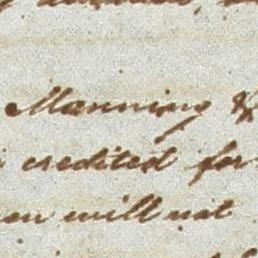 Manning &
credited for
will not